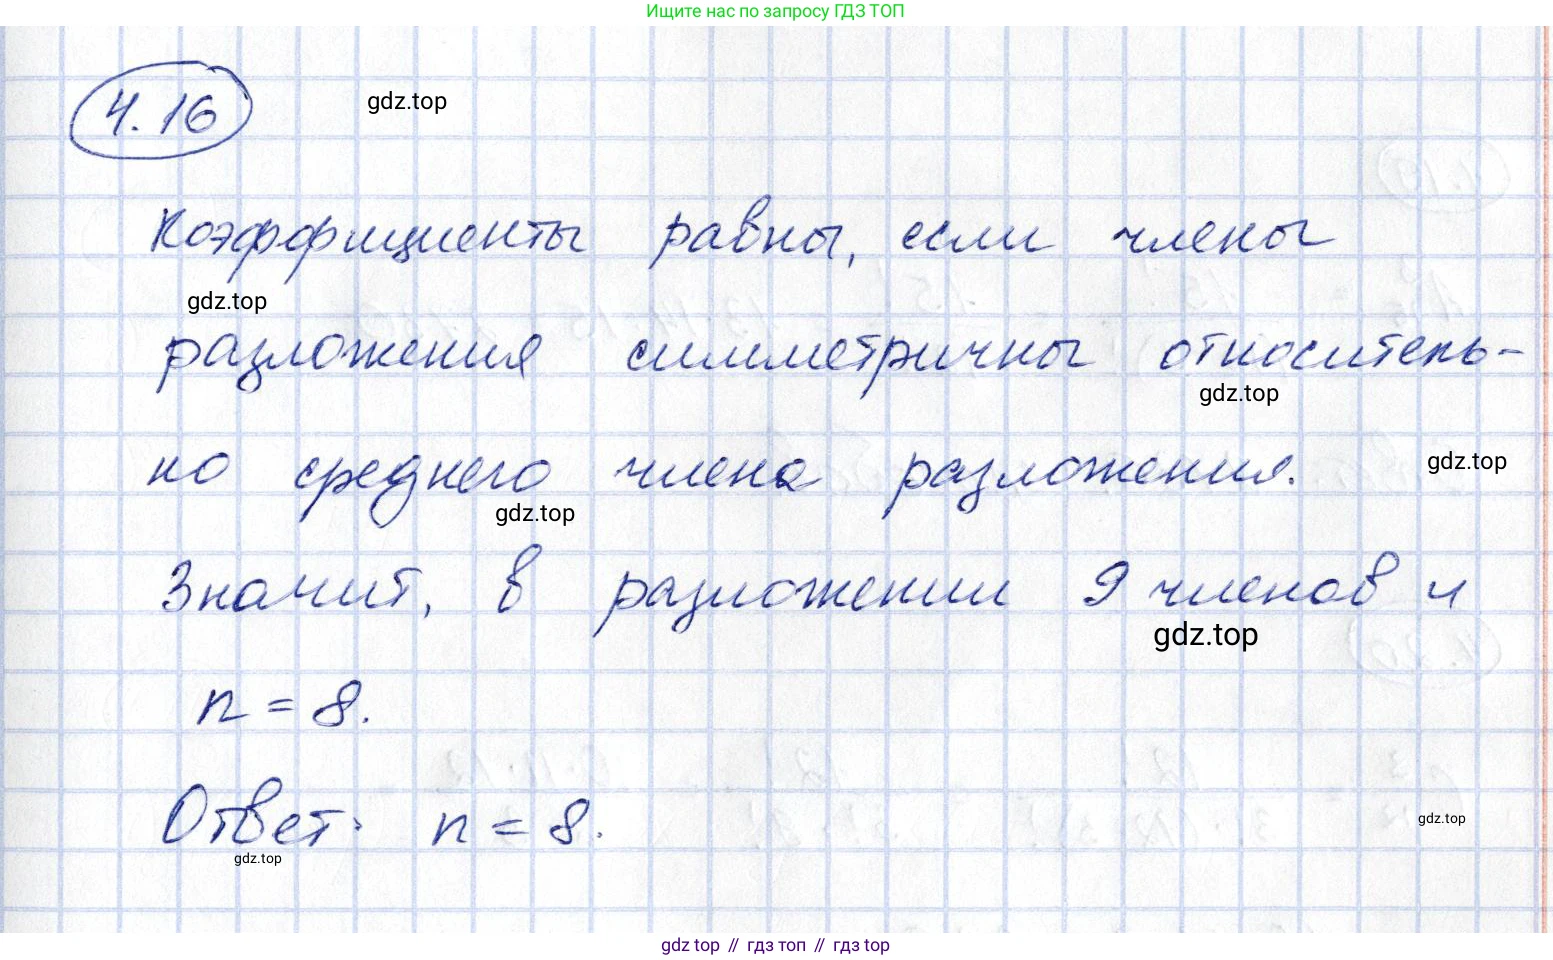 Ищите нас по запросу ГДЗ ТОП
4.16
gdz.top
Коэффициенты равны, если члены
gdz.top
разложения симметричны относитель-
gdz.top
но среднего члена разложения.
gdz.top
gdz.top
Значит, в разложении 9 членов и
gdz.top
n = 8.
Ответ: n = 8.
gdz.top
gdz.top
gdz.top // гдз топ // гдз top